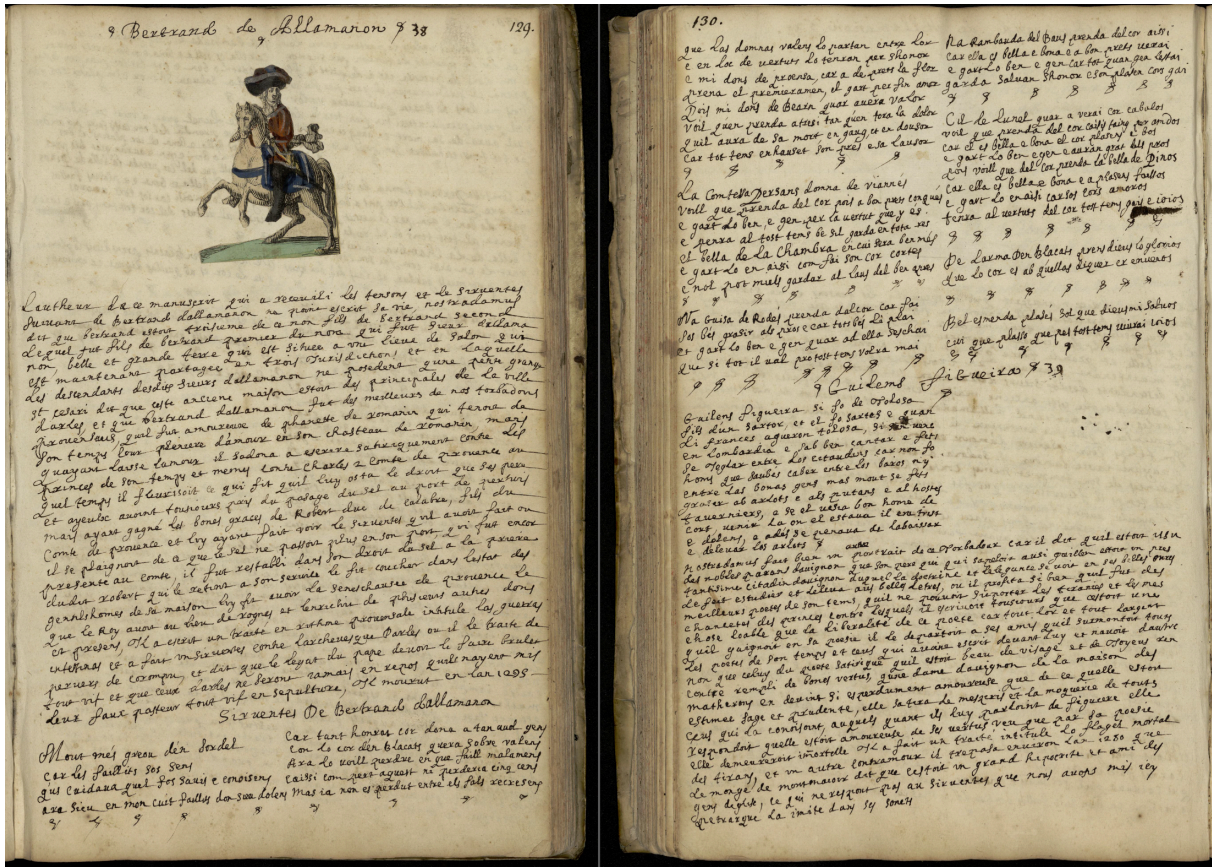 Bertrand de Allamanon 38
129.
Lautheur de ce manuscrit qui a recueilli les tensons et le sirventes
suivant de Bertrand dallamanon ne point escrit sa vie, nostradamus
dit que bertrand estoit troisieme de ce non fils de bertrand second
lequel fut fils de bertrand premier du nom, qui fut sieur dallama
non, belle et grande terre qui est situee a une lieue de salon qui
est maintenant partagee en trois Jurisdictions et en laquelle
les descendants desdits sieurs dallamanon ne posedent qune petite
et cesari dit que ceste ancienne maison estoit des principales de la ville
darles, et que bertrand dallamanon fut des meilleurs de nos torbadours
prouensaus, quil fut amoureuse de phanete de romanin qui tenoit de
son temps cour pleniere damour en son chasteau de romanin, mais
quayant laisse lamour il sadona a escrire satiriquement contre les
princes de son temps et memes contre Charles 2 Comte de prouence au
quel temps il fleurissoit ce qui fit quil luy osta le droit que ses pere
et ayeulx avoint tousjours pris du pasage du sel au port de pertuis
mais ayant gagné les bones graces de Robert duc de calabre, fils du
Comte de provence et luy ayant fait voir le sirventes quil avoit fait ou
il se plaignoit de ce que le sel ne passoit plus en son port, qui fut encor
presente au comte, il fut restabli dans son droit du sel a la priere
dudit robert qui le retint a son service le fit coucher dans lestat des
gentilshomes de sa maison luy fit avoir la seneschausee de provence le
que le Roy avoit au lieu de rognes et lenrichie de plusieurs autres dons
et presens, Il a escrit un traite en rithme provensale intitule las guerras
intestinas et a fait un sirventes contre larchevesque darles ou il le traite de
pervers de corompu, et dit que le legat du pape devoit le faire bruler
tout vif et que ceux darles ne seront iamais en repos quils nayent mis
leur faux pasteur tout vif en sepulture, Il mourut en lan 1295
Sirventes De Bertrand dallamanon
Mout mes greou den Sordel
car les faillits sos sens
qus cuidava quel fos savis e conoisens
ara sieu en mon cuit faillos don sui dolens
Car tant honrat cor dona a tan avol gens
Con lo cor den Blacats quera sobre valens
Ara lo voill perdre en que faill malamens
Caissi com pert aquest ni perderia cinq cens
Mas ia non es perdut entre els fals recresens
130.
que las domnas valens lo partan entre lor
e en loc de vertuts lo tenran per shonor
e mi dons de proensa, car a de prets la flor
prena el premieramen, el gart per fin amor
Pois mi dons de Bearn quar avera valor
voil quen prenda atresi tan quen tora la dolor
quil aura de sa mort en gaug, et en dousor
Car tot tems enhauset son pres e sa lausor
La Comtessa Persans domna de viannes
voill que prenda del cor pois a bon prets conques
e gart lo ben, e gen per la vertut que y es
e penra al tost tems be sil garda en tota res
el bella de la Chambra en cui sera ben mes
e gart lo en aissi com fai son cor cortes
e nol pot miels gardar al laus del ben apres
Na Guisa de Rodes prenda dal cor car fai
sos bes grasir als pros e car totz bes li plai
et gart lo ben e gen quar ad ella seschai
que si tot il val pro tost tens volra mai
Na Rambauda del Baus prenda del cor aissi
car ella es bella e bona e a bon prets verai
e gart lo ben e gen car tot quan gen lestai
garda salvan shonor e son plasen cors gai
Cil de lunel quar a verai cor cabalos
voil que prenda del cor caisis taing per amdos
car el es bella e bona el cor plasen e bos
e gart lo ben e gen e auran grat dels pros
pois voill que del cor prenda la bella de Pinos
car ella es bella e bona e a plasens faissos
e gart lo en aisi car sos cors amoros
tenra al vertuts del cor tost tems gais e ioios
De larma Den Blacats pens dieus lo glorios
que lo cor es ab quellas diquer er enveios
Bel esmenda plases sol que dieus mi salvos
cui que plasso que pes tost tems viurai ioios
Guilems Figueira 39
Guilens figueira si fo de Tolosa
fils dun sartor, et el fo sartes e quan
li frances agueron tolosa, si sen venc
en lombardia e sab ben cantar e fets
se Joglar entre los citaudins car non fo
homs que saubes caber entre los baros ny
entre las bonas gens mas mout se fets
grasir ab arlots e als putans e al hostes
taverniers, e se el vesia bon home de
cort, venir la on el estava il era trist
e dolens, e ades se penava de labaissar
e delevar los arlots
nostradamus fait bien un autre portrait de ce torbadour car il dit quil estoit issu
des nobles parans davignon que son pere qui sapeloit ausi guillem estoit un pres
tantissime citadin davignon duquel la doctrine et lelegance se voit en ses filles quil
le fait estudier et lesleva aux belles lettres, ou il profita si bien quil fut des
meilleurs poetes de son tems, quil ne pouvoit suporter les tiranies et les mes
chancetes des princes contre lesquels il escrivoit tousjours que cestoit une
chose loable que la liberalite de ce poete car tout lor et tout largent
quil gaignoit en sa poesie il le departoit a ses amis quil surmontoit tous
les poetes de son temps et ceus qui avant escrit devant luy et navoit dautre
non que celuy du poete satirique quil estoit beau de visage et de Joyeus ren
contre rempli de bones vertus, qune dame davignon de la maison des
matherons en devint si esperdument amoureuse que de ce quelle estoit
estimee sage et prudente, elle satira le mespris et la moquerie de touts
ceus qui la conoisoint, auquels quant ils luy parloint de figueire elle
respondoit quelle estoit amoureuse de ses vertus veu que par sa poesie
elle demeureroit imortelle Il a fait un traite intitule lo flagel mortal
des tirans, et un autre contramour il trepasa environ lan 1280 que
le monge de montmaior dit que cestoit un grand hipocrite et ami des
gens deglise, ce qui ne respont pas au sirventes que nous avons mis icy
petrarque la imite dans ses sonets